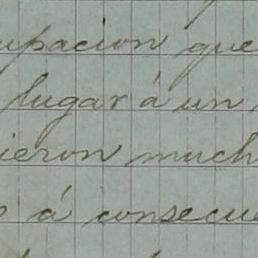 upacion que
lugar á un
ieron much
á consecue